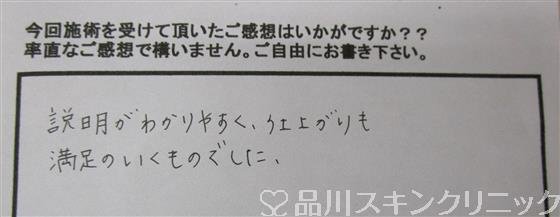 今回施術を受けて頂いたご感想はいかがですか??
率直なご感想で構いません。ご自由にお書き下さい。
説明がわかりやすく、仕上がりも
満足のいくものでした、
品川スキンクリニック